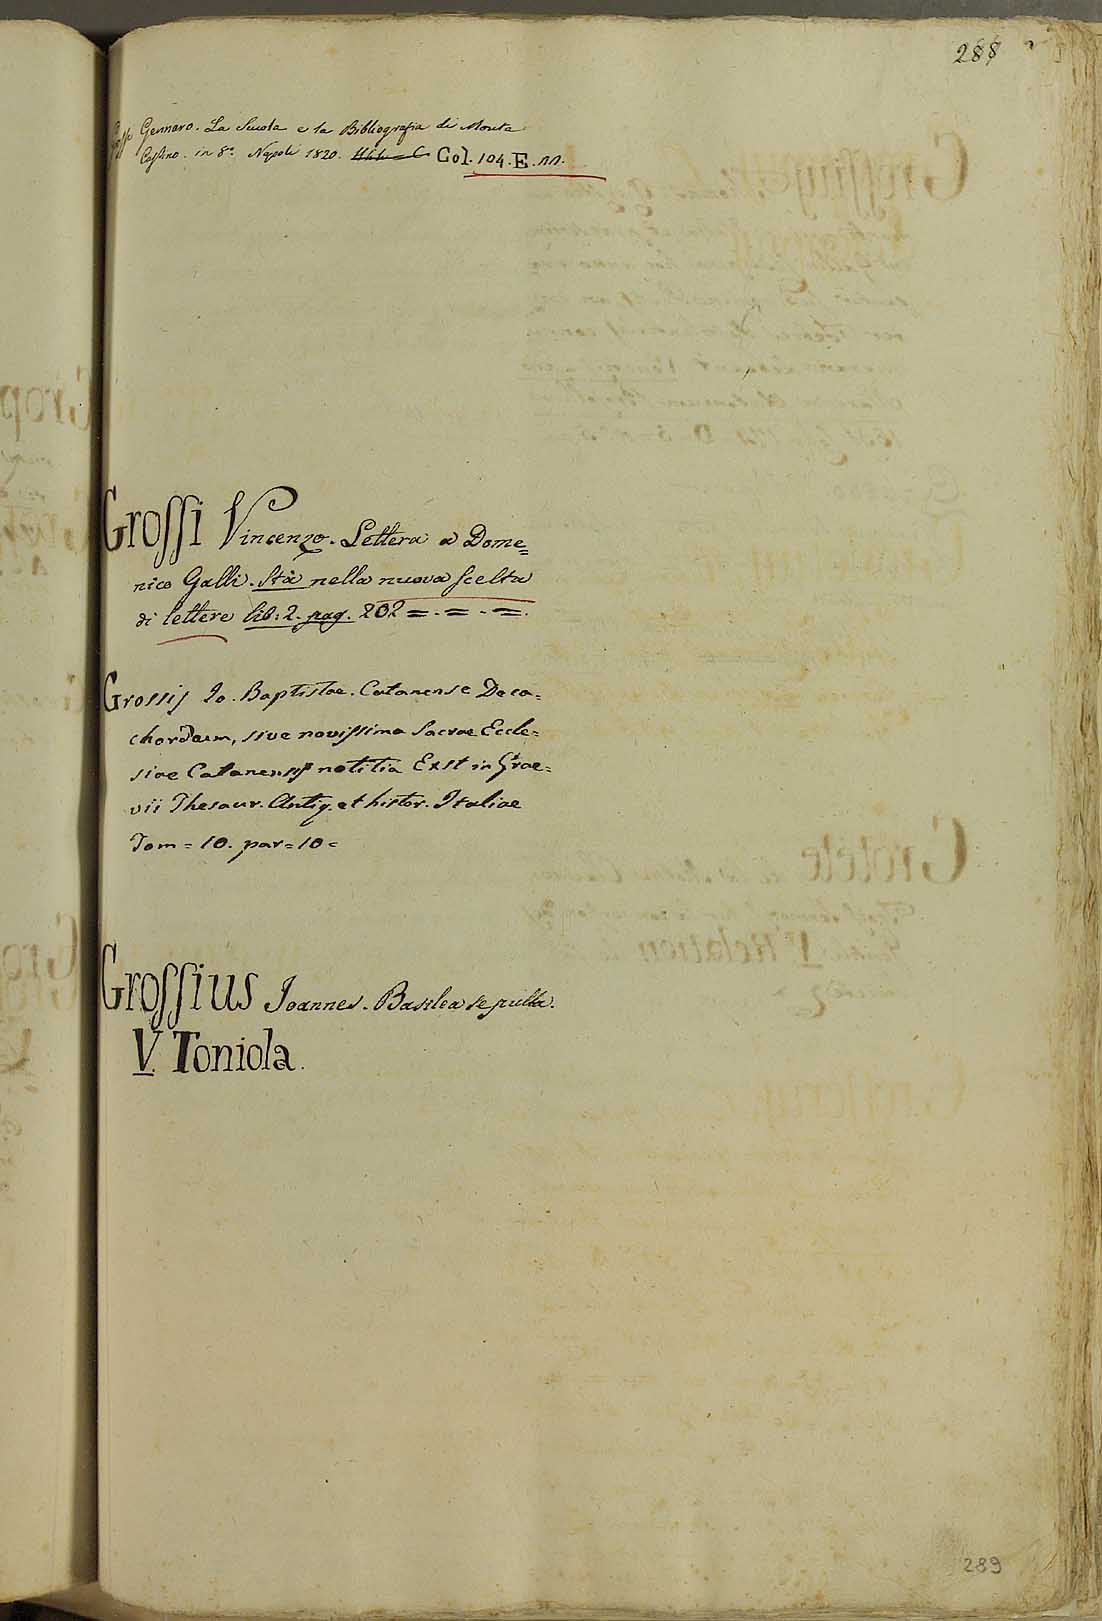 288
Grossi Gennaro. La Scuola e la Bibliografia di Monte
Cassino. in 8.° Napoli 1820. Gol. 104. E. nn.
Grossi Vincenzo. Lettera a Dome=
nico Galli. Stà nella nuova scelta
di lettere lib: 2. pag. 202 = . = . = .
Grossij Io. Baptistae. Catanense Deca=
chordum, sive novissima Sacrae Eccle=
siae Catanensis notitia Exst in Grae=
vii Thesaur. Antiq. et histor. Italiae
Tom = 10. par = 10 =
Grossius Joannes. Basilea sepulta.
V. Toniola.
289